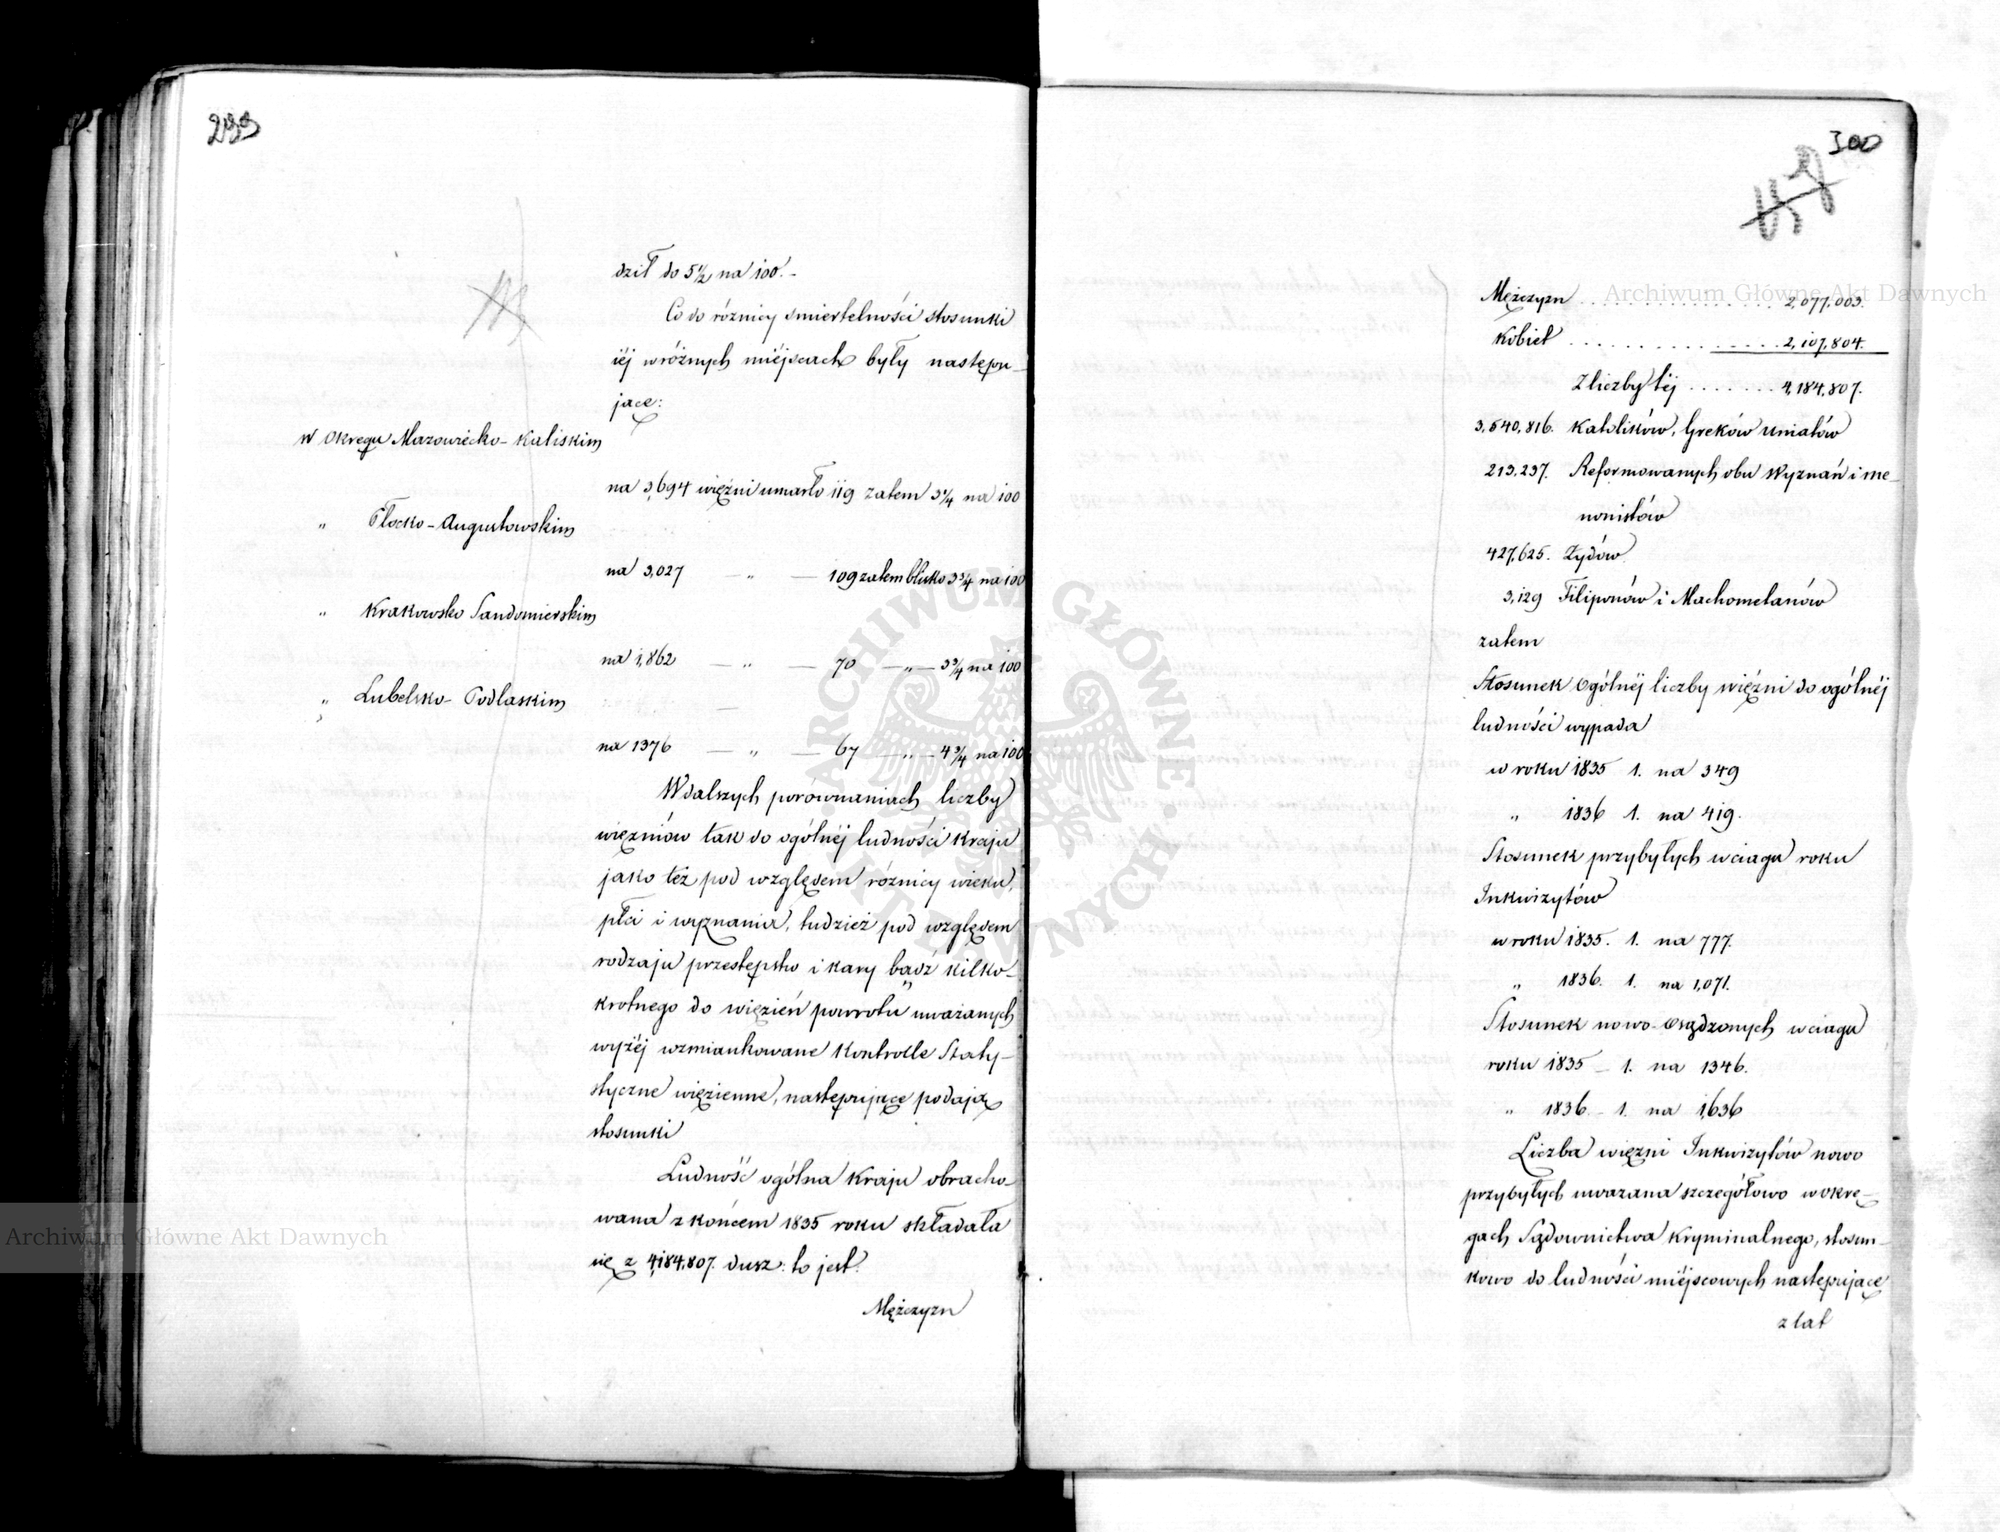 299
dził do 5½ na 100.–
Co do różnicy smiertelności stosunki
iéj w różnych miéjscach były następu–
jące:
W Okręgu Mazowiecko–Kaliskim
na 3,694 więźni umarło 119 zatem 3¼ na 100
„ Płocko–Augustowskim
na 3,027 — „ — 109 zatem blisko 3¾ na 100
„ Krakowsko Sandomierskim
na 1,862 — „ — 70 — „ — 3¾ na 100
„ Lubelsko–Podlaskim
na 1376 — „ — 67 — „ — 4¾ na 100
W dalszych porównaniach liczby
więzniów tak do ogólnéj ludności Kraju
jako też pod względem różnicy wieku,
płci i wyznania, tudzież pod względem
rodzaju przestępstw i kary bądź kilko–
krotnego do więzień powrotu uważanych
wyżéj wzmiankowane Kontrolle Staty–
styczne więzienne, następujące podają
stosunki
Ludność ogólna Kraju obracho–
wana z końcem 1835 roku składała
się z 4,184,807. dusz: to jest:
Mężczyzn
300
Mężczyzn . . . . . . . . . . . . . . 2,077,003.
Kobiet . . . . . . . . . . . . . . . 2,107,804.
Z liczby téj . . . . . . . 4,184,807.
3,540,816. Katolików, Greków Uniatów
213,237. Reformowanych obu Wyznań i me–
nonistów
427,625. Żydów
3,129 Filiponów i Machometanów
zatem
Stosunek Ogólnéj liczby więźni do ogólnéj
ludności wypada
w roku 1835 1. na 349
„ 1836 1. na 419.
Stosunek przybyłych w ciągu roku
Inkwizytów
w roku 1835. 1. na 777.
„ 1836. 1. na 1,071.
Stosunek nowo-osądzonych w ciągu
roku 1835 – 1. na 1346.
„ 1836 – 1. na 1,636
Liczba więzni Inkwizytów nowo
przybyłych uwazana szczegółowo w okrę–
gach Sądownictwa Kryminalnego, stosun–
kowo do ludności miéjscowych następujące
z lat
Archiwum Główne Akt Dawnych
Archiwum Główne Akt Dawnych
ARCHIWUM GŁÓWNE AKT DAWNYCH